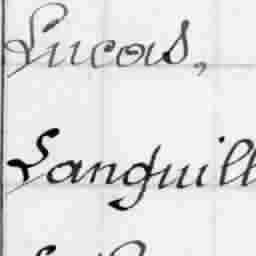 Lucas,
Languill